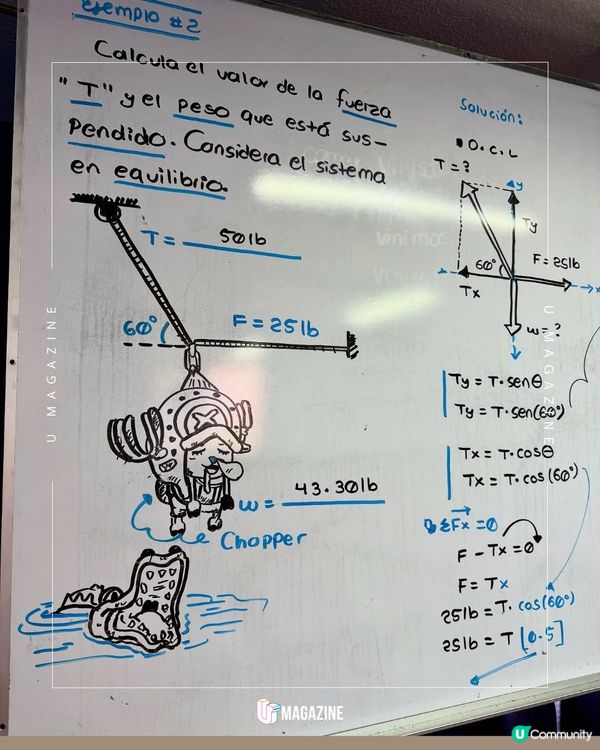 Ejemplo #2
Calcula el valor de la fuerza
"T" y el peso que está sus-
pendido. Considera el sistema
en equilibrio.
T = 50 lb
60°
F = 25 lb
w = 43.30 lb
Chopper
Solución:
D.C.L
T = ?
y
Ty
60°
F = 25 lb
x
Tx
w = ?
Ty = T·senθ
Ty = T·sen(60°)
Tx = T·cosθ
Tx = T·cos(60°)
ΣFx = 0
F - Tx = 0
F = Tx
25 lb = T· cos(60°)
25 lb = T [0.5]
U MAGAZINE
U MAGAZINE
U MAGAZINE
U Community